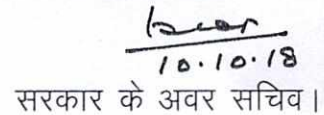 10.10.18
सरकार के अवर सचिव।